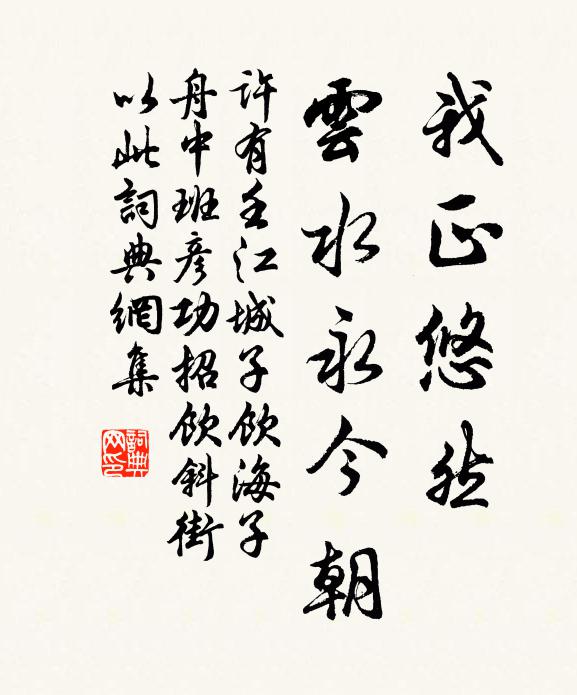 我正悠然
雲水永今朝
許有壬江城子飲海子
舟中班彥功招飲斜街
以此詞典網集
詞典网印